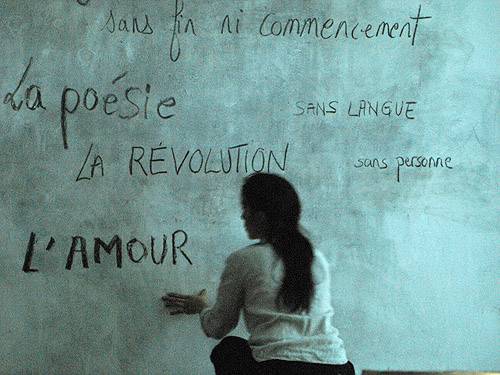 sans fin ni commencement
La poésie
SANS LANGUE
LA RÉVOLUTION
sans personne
L'AMOUR